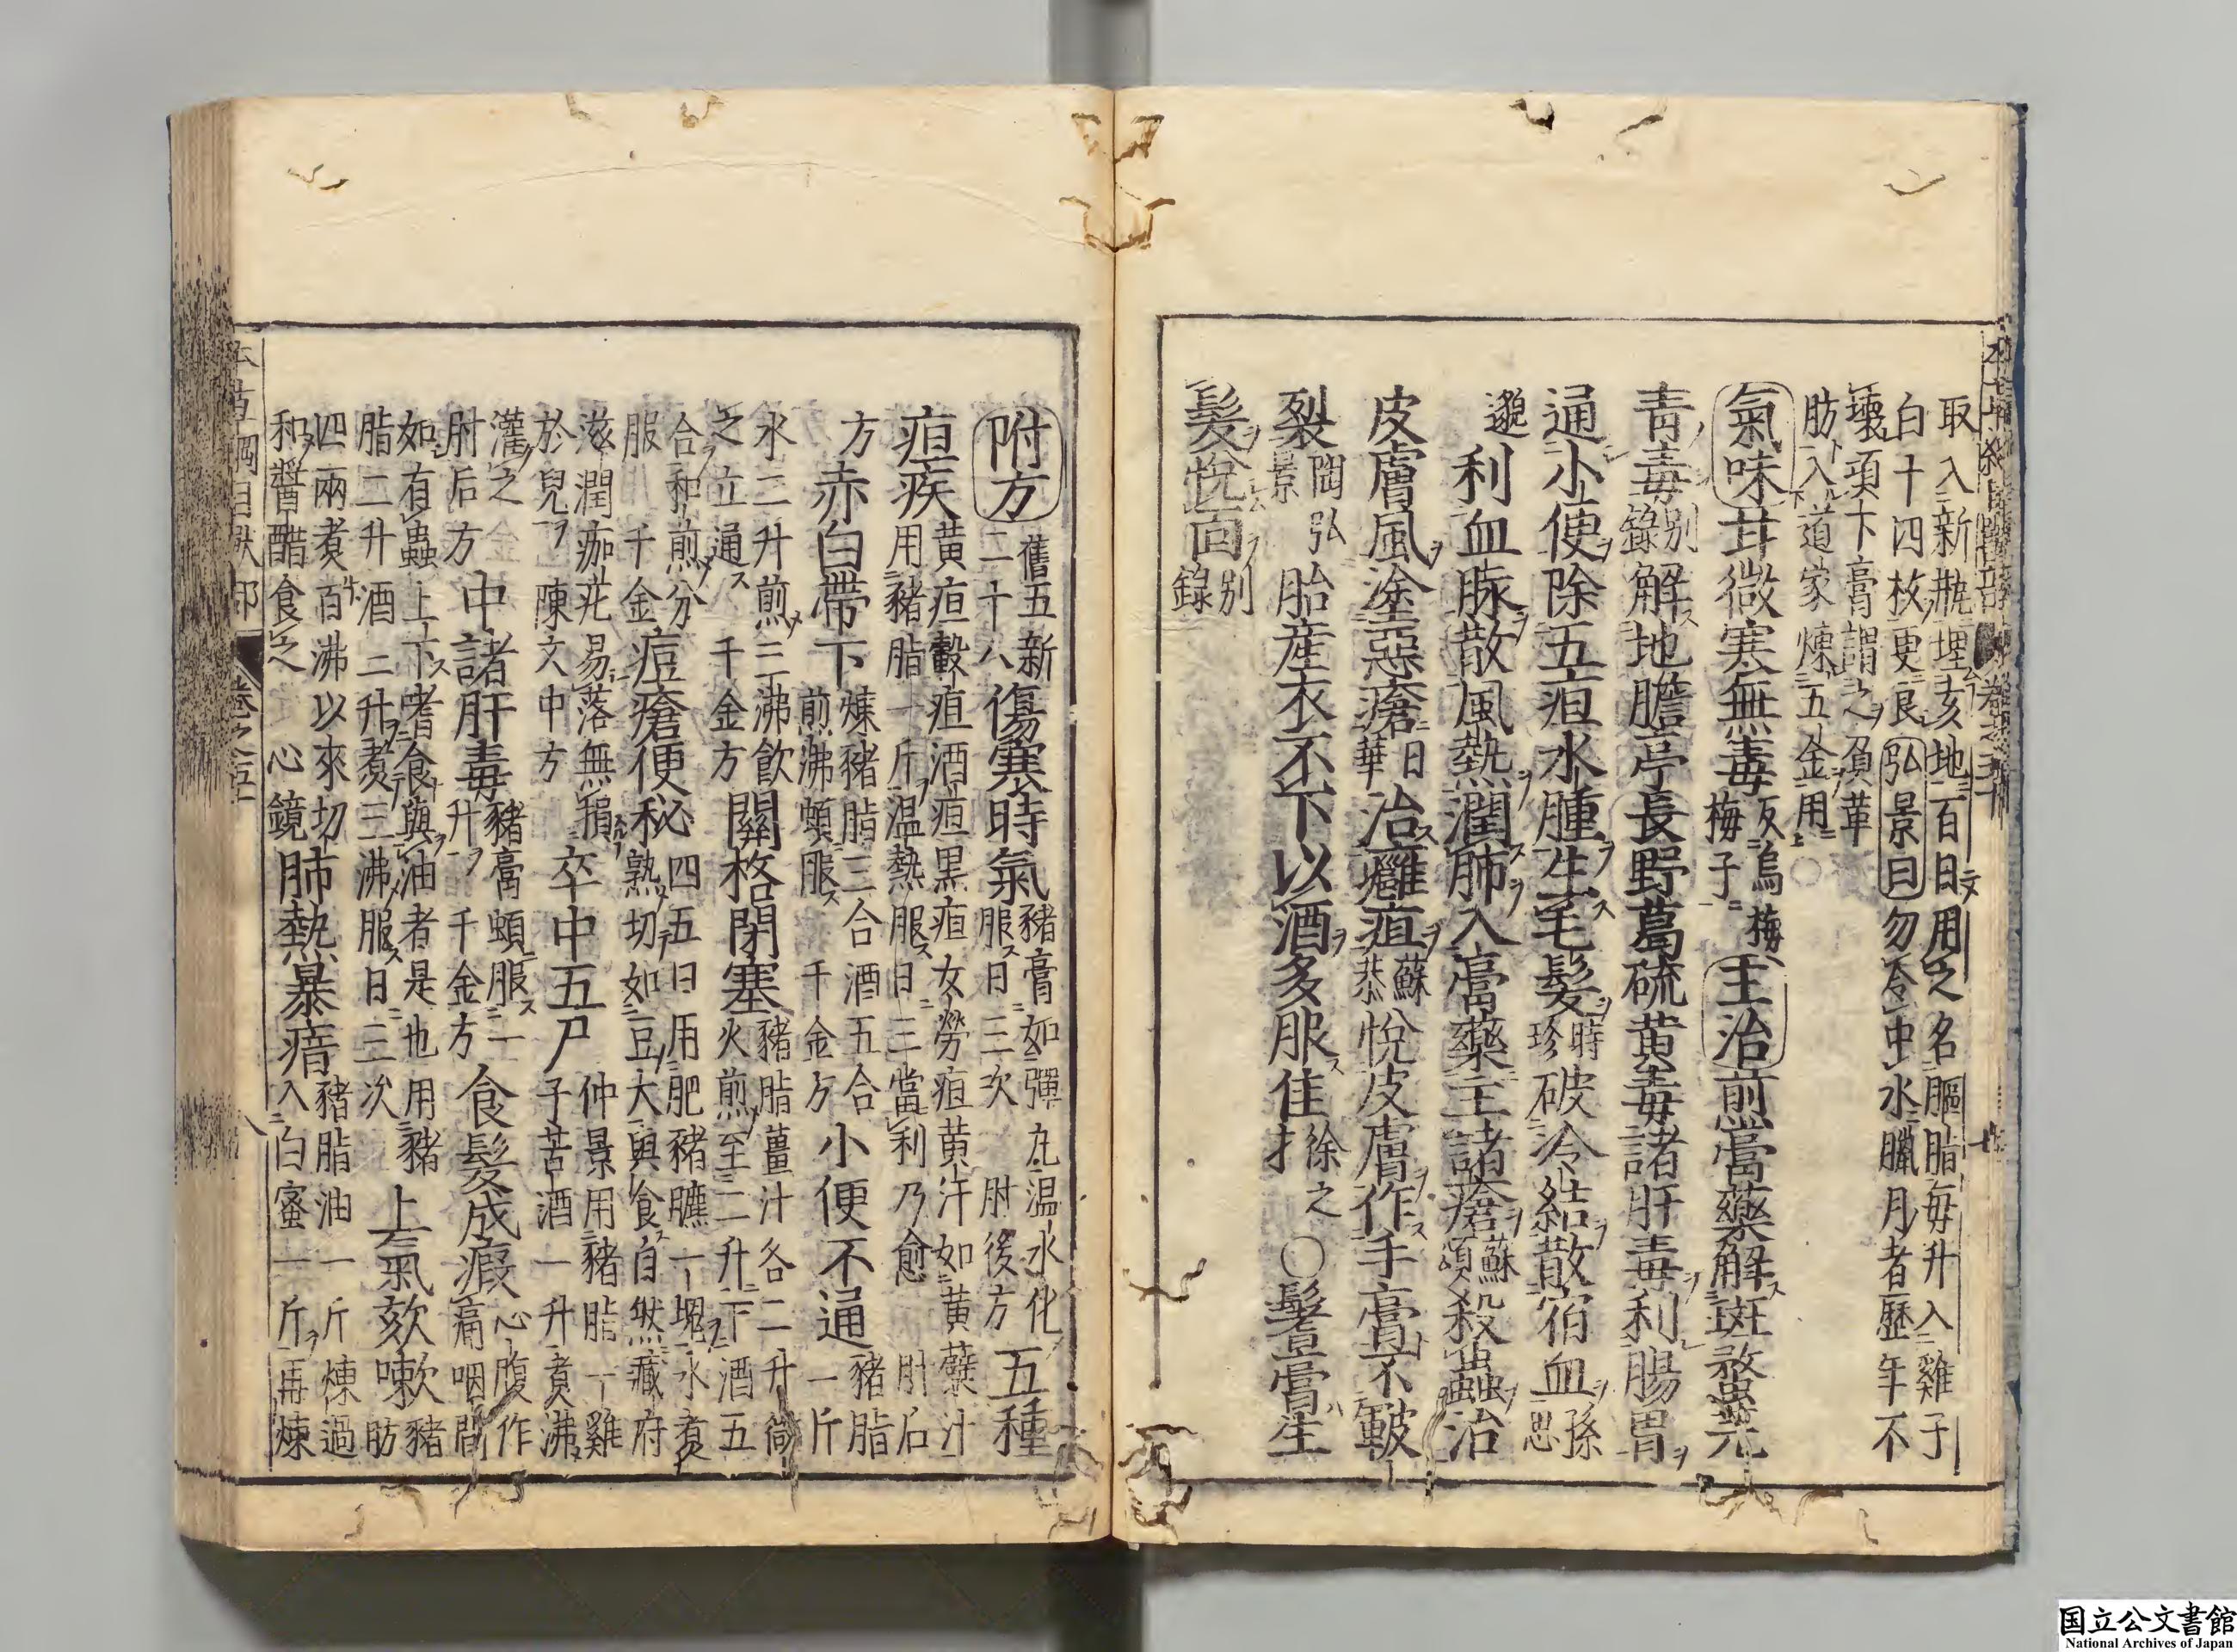 取入新瓶埋亥地百日用之名䐈脂每升入雞子
白十四枚更良弘景曰勿令中水臘月者歷年不
壞項下膏謂之負革
肪入道家煉五金用○
氣味甘微寒無毒反烏梅梅子主治煎膏藥解斑蝥芫
青毒別錄解地膽亭長野葛硫黄毒諸肝毒利腸胃
通小便除五疸水腫生毛髮時珍破冷結散宿血孫思
邈利血脉散風熱潤肺入膏藥主諸瘡蘇頌殺蟲治
皮膚風塗惡瘡日華治癰疽蘇恭悅皮膚作手膏不皸
裂陶弘景胎産衣不下以酒多服佳徐之才○鬐膏生
髮悅面別錄
附方舊五新二十八傷寒時氣豬膏如彈丸温水化服日三次肘後方五種
疸疾黄疸穀疸酒疸黒疸女勞疸黄汗如黄蘗汁用豬脂一斤温熱服日三當利乃愈肘后
方赤白帶下煉豬脂三合酒五合煎沸頓服千金方小便不通豬脂一斤
水二升煎三沸飲之立通千金方關格閉塞豬脂薑汁各二升微火煎至二升下酒五
合和煎分服千金痘瘡便秘四五日用肥豬臕一塊水煮熟切如豆大與食自然藏府
滋潤痂疕易落無損於兒陳文中方卒中五尸仲景用豬脂一雞子苦酒一升煮沸
灌之肘后方中諸肝毒豬膏頓服一升千金方食髮成瘕心腹作痛咽間
如有蟲上下嗜食與油者是也用豬脂二升酒三升煮三沸服日三次上氣欬嗽豬肪
四兩煮百沸以來切和醬醋食之心鏡肺熱暴瘖豬脂油一斤煉過入白蜜一斤再煉
本草綱目獸部 卷之五十
国立公文書館
National Archives of Japan